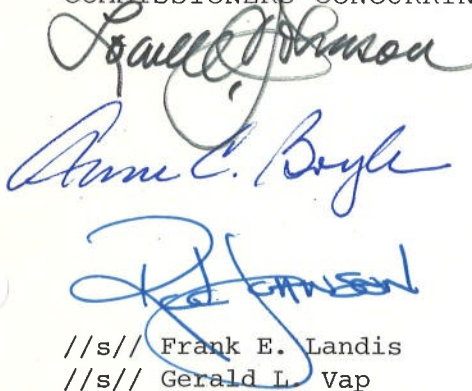 COMMISSIONERS CONCURRIN
Johnson
Anne C. Boyle
Rod Johnson
//s// Frank E. Landis
//s// Gerald L. Vap